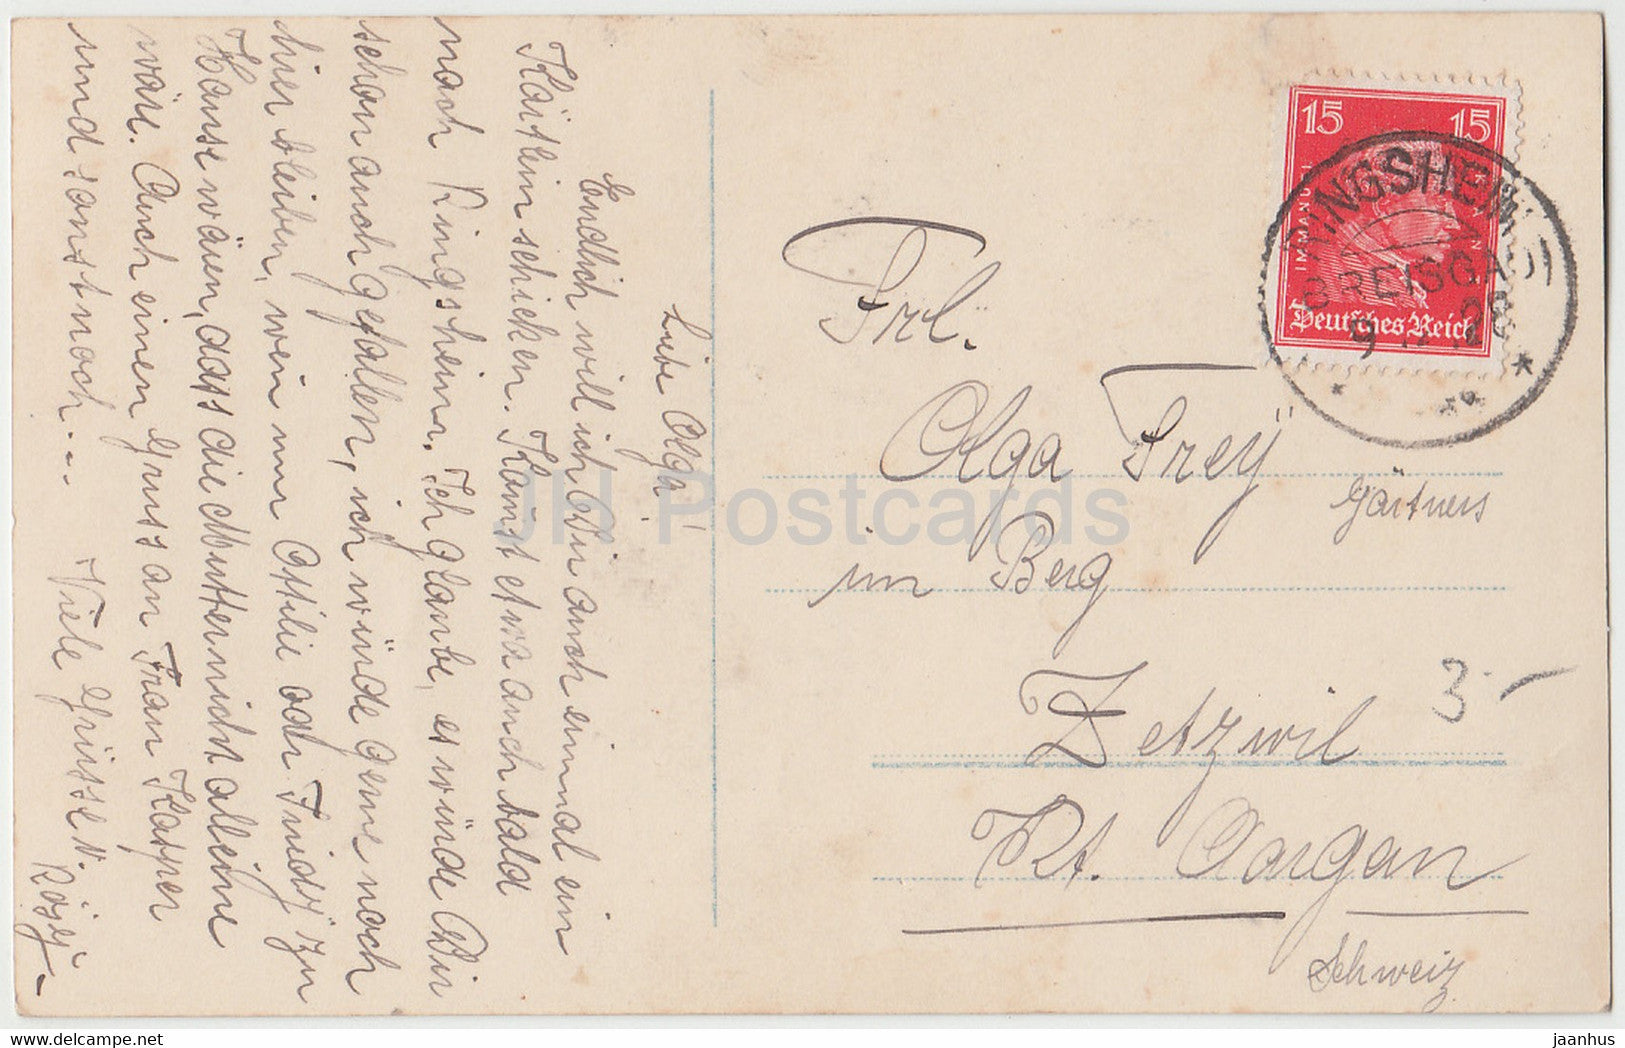 Liebe Olga!
Endlich will ich Dir auch einmal ein
Kärtlein schicken. Kannst etwa auch bald
nach Ringsheim. Ich glaube, es würde Dir
schon auch gefallen, ich würde gerne noch
hier bleiben, wen nur Ottilie oder Truidy zu
Hause wären, dass die Mutter nicht alleine
wäre. Auch einen Gruss an Frau Kasper
und sonst noch...
Viele Grüsse v.
Rösy
IMMANUEL KANT
15 15
Deutsches Reich
RINGSHEIM
BREISGAU
Frl.
Olga Frey
Gärtners
im Berg
Zetzwil
Kt. Aargau
Schweiz
3.-
JH Postcards
www.delcampe.net
jaanhus